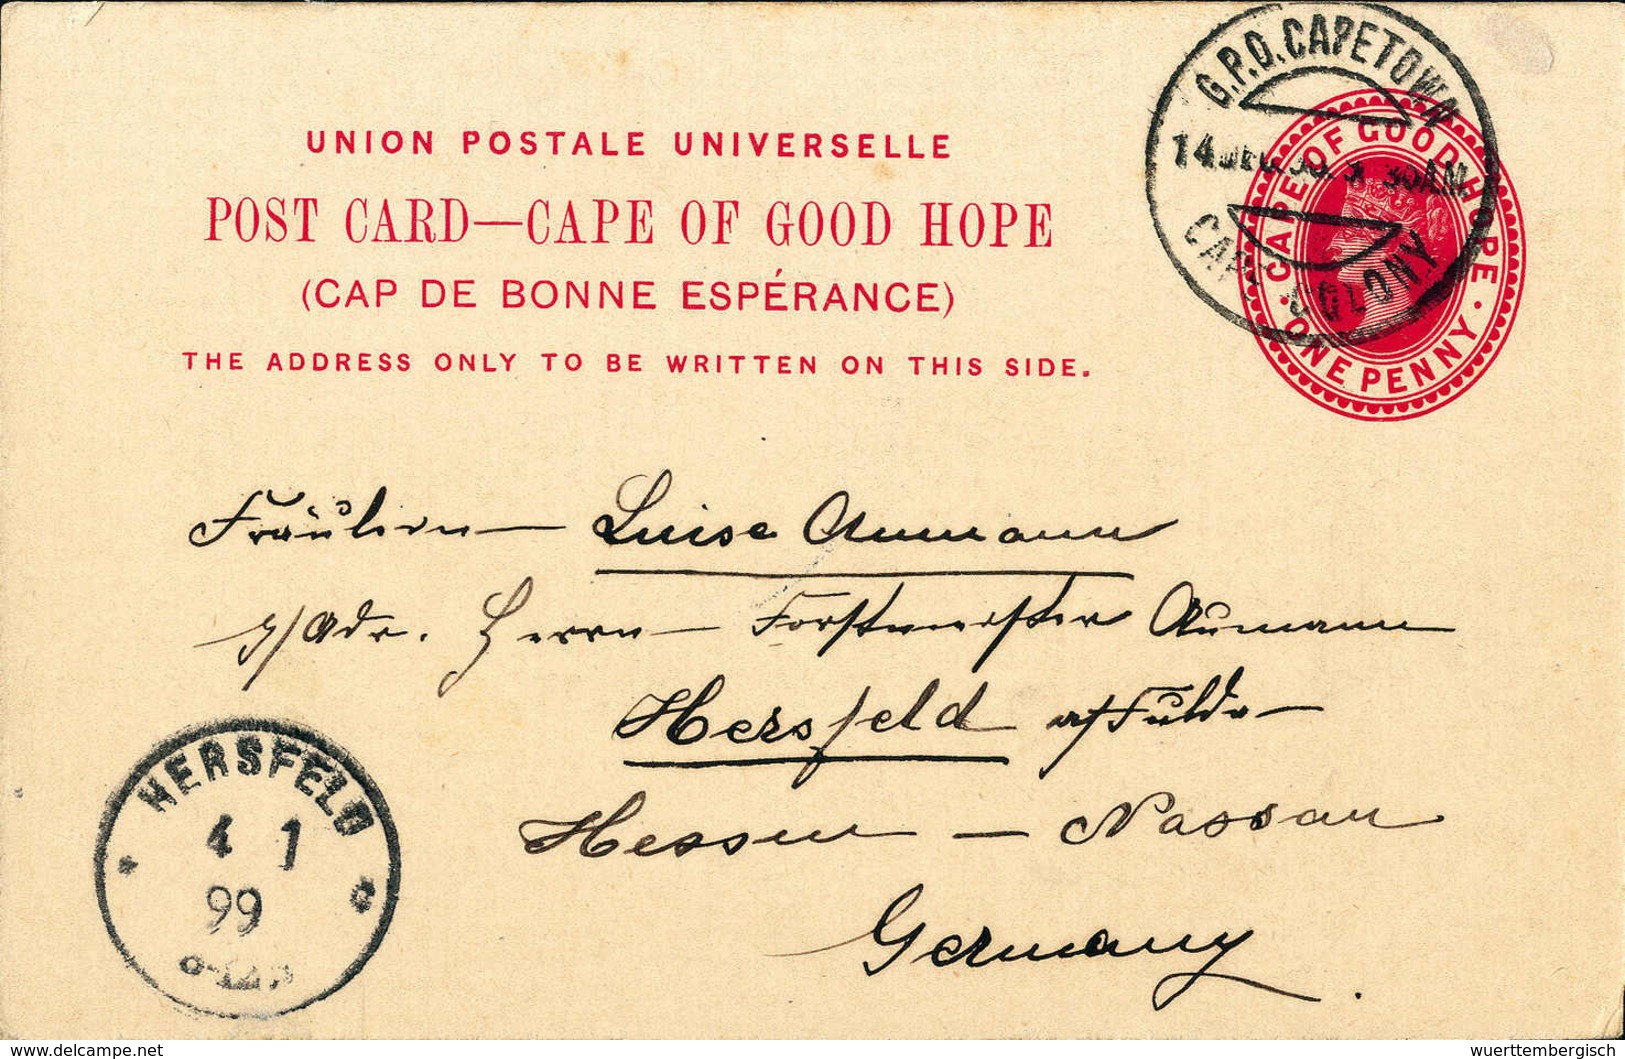 UNION POSTALE UNIVERSELLE
POST CARD—CAPE OF GOOD HOPE
(CAP DE BONNE ESPÉRANCE)
THE ADDRESS ONLY TO BE WRITTEN ON THIS SIDE.
G.P.O. CAPETOWN
14
COLONY
CAPE OF GOOD HOPE
ONE PENNY
Fräulein Luise Aumann
Adr. Herrn Forstmeister Aumann
Hersfeld a/Fulda
Hessen — Nassau
Germany.
HERSFELD
4 1
99
delcampe.net
wuerttembergisch